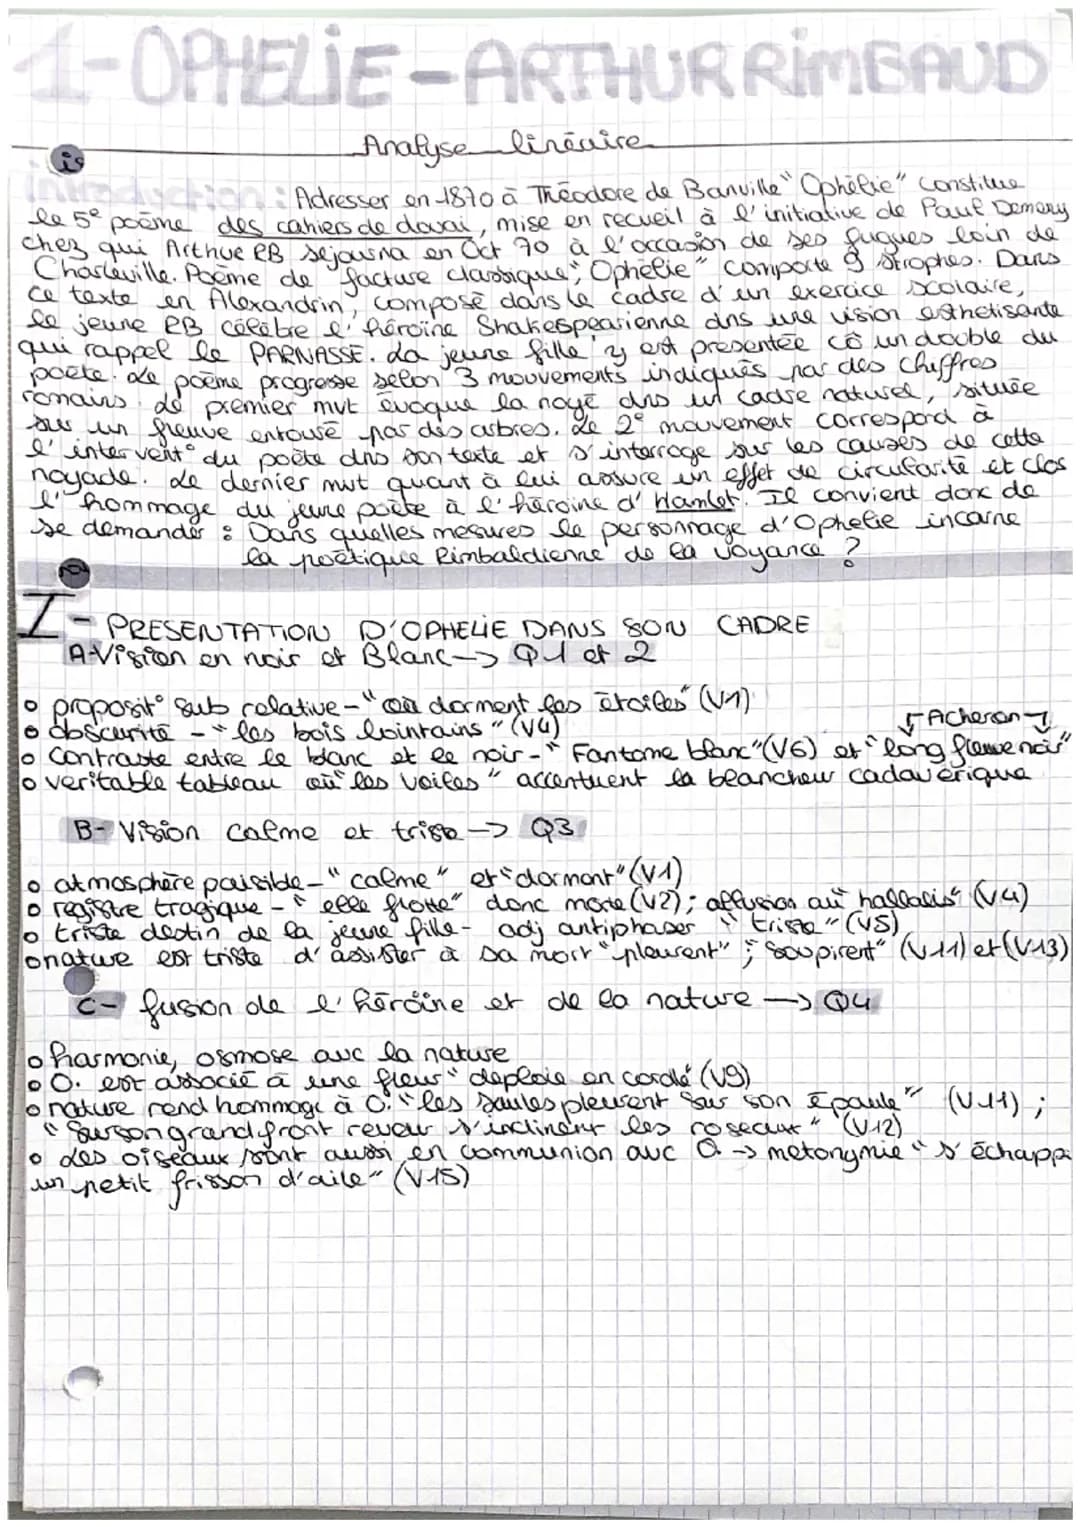 1-OPHELiE-ARTHUR RiMBAUD
Analyse linéaire
introduction: Adresser en 1870 à Théodore de Banville "Ophélie" constitue
le 5e poème des cahiers de douai, mise en recueil à l'initiative de Paul Demeny
chez qui Arthur RB séjourna en Oct 70 à l'occasion de ses fugues loin de
Charleville. Poème de facture classique, "Ophélie" comporte 9 strophes. Dans
ce texte en Alexandrin, composé dans le cadre d'un exercice scolaire,
le jeune RB célèbre l'héroïne Shakespearienne dns une vision esthetisante
qui rappel le PARNASSE. La jeune fille y est presentée cô un double du
poète. Le poème progresse selon 3 mouvements indiqués par des chiffres
romains. Le premier mvt évoque la noyé dns un cadre naturel, située
sur un fleuve entouré par des arbres. Le 2e mouvement correspond à
l'intervent° du poète dns son texte et s'interroge sur les causes de cette
noyade. Le dernier mvt quant à lui assure un effet de circularité et clos
l'hommage du jeune poète à l'héroïne d'Hamlet. Il convient donc de
se demander : Dans quelles mesures le personnage d'Ophelie incarne
la poétique Rimbaldienne de la voyance ?
I- PRESENTATION D'OPHELIE DANS SON CADRE
A-Vision en noir et Blanc-> Q1 et 2
o proposit° sub relative-"où dorment les étoiles" (V1)
o obscurité - "les bois lointains" (V4)
Acheron
o contraste entre le blanc et le noir-"Fantome blanc"(V6) et "long fleuve noir"
o veritable tableau où "les voiles" accentuent la blancheur cadavérique
B- Vision calme et triste -> Q3
o atmosphère paisible-"calme" et "dorment" (V1)
o registre tragique - "elle flotte" donc morte (V2); allusion au "hallalis" (V4)
o triste destin de la jeune fille- adj antiphaser "triste" (V5)
o nature est triste d'assister à sa mort "pleurent"; "soupirent" (V11) et (V13)
C- fusion de l'héroïne et de la nature -> Q4
o harmonie, osmose avc la nature
o O. est associé à une fleur "deploie en corolle" (V9)
o nature rend hommage à O. "les saules pleurent sur son épaule" (V11);
"Sur son grand front reveur s'inclinent les roseaux" (V12)
o des oiseaux sont aussi en communion avc O. -> metonymie "s'échappe
un petit frisson d'aile" (V15)